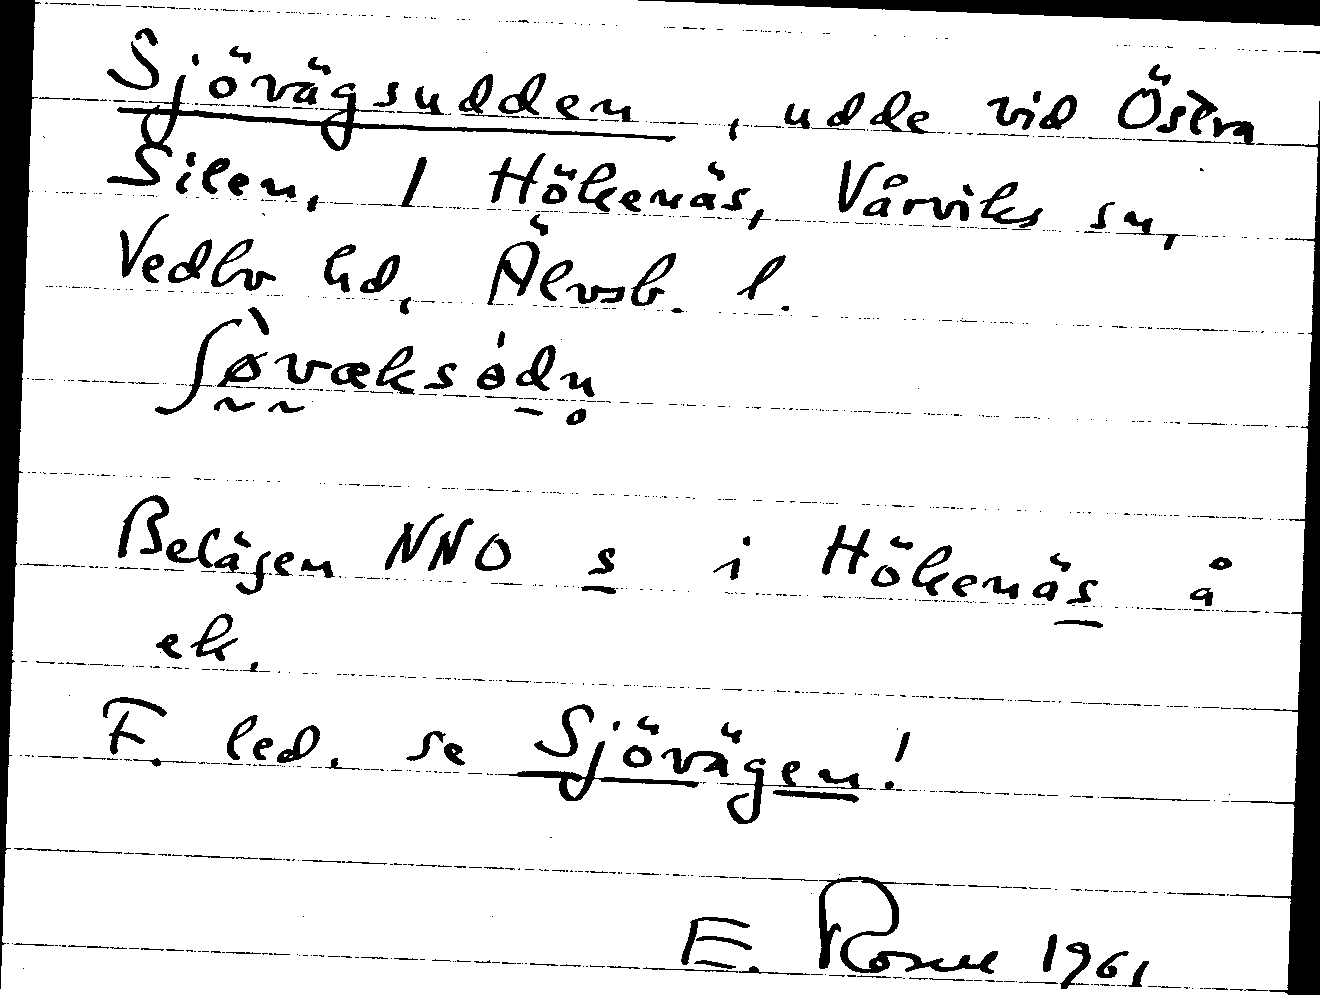 Sjövägsudden, udde vid Östra
Silen, 1 Hökenäs, Vårviks sn,
Vedbo hd, Älvsb. l.
ʃø̀væksódn̥
Belägen NNO s i Hökenäs å
ek.
F. led. se Sjövägen!
E. 1961